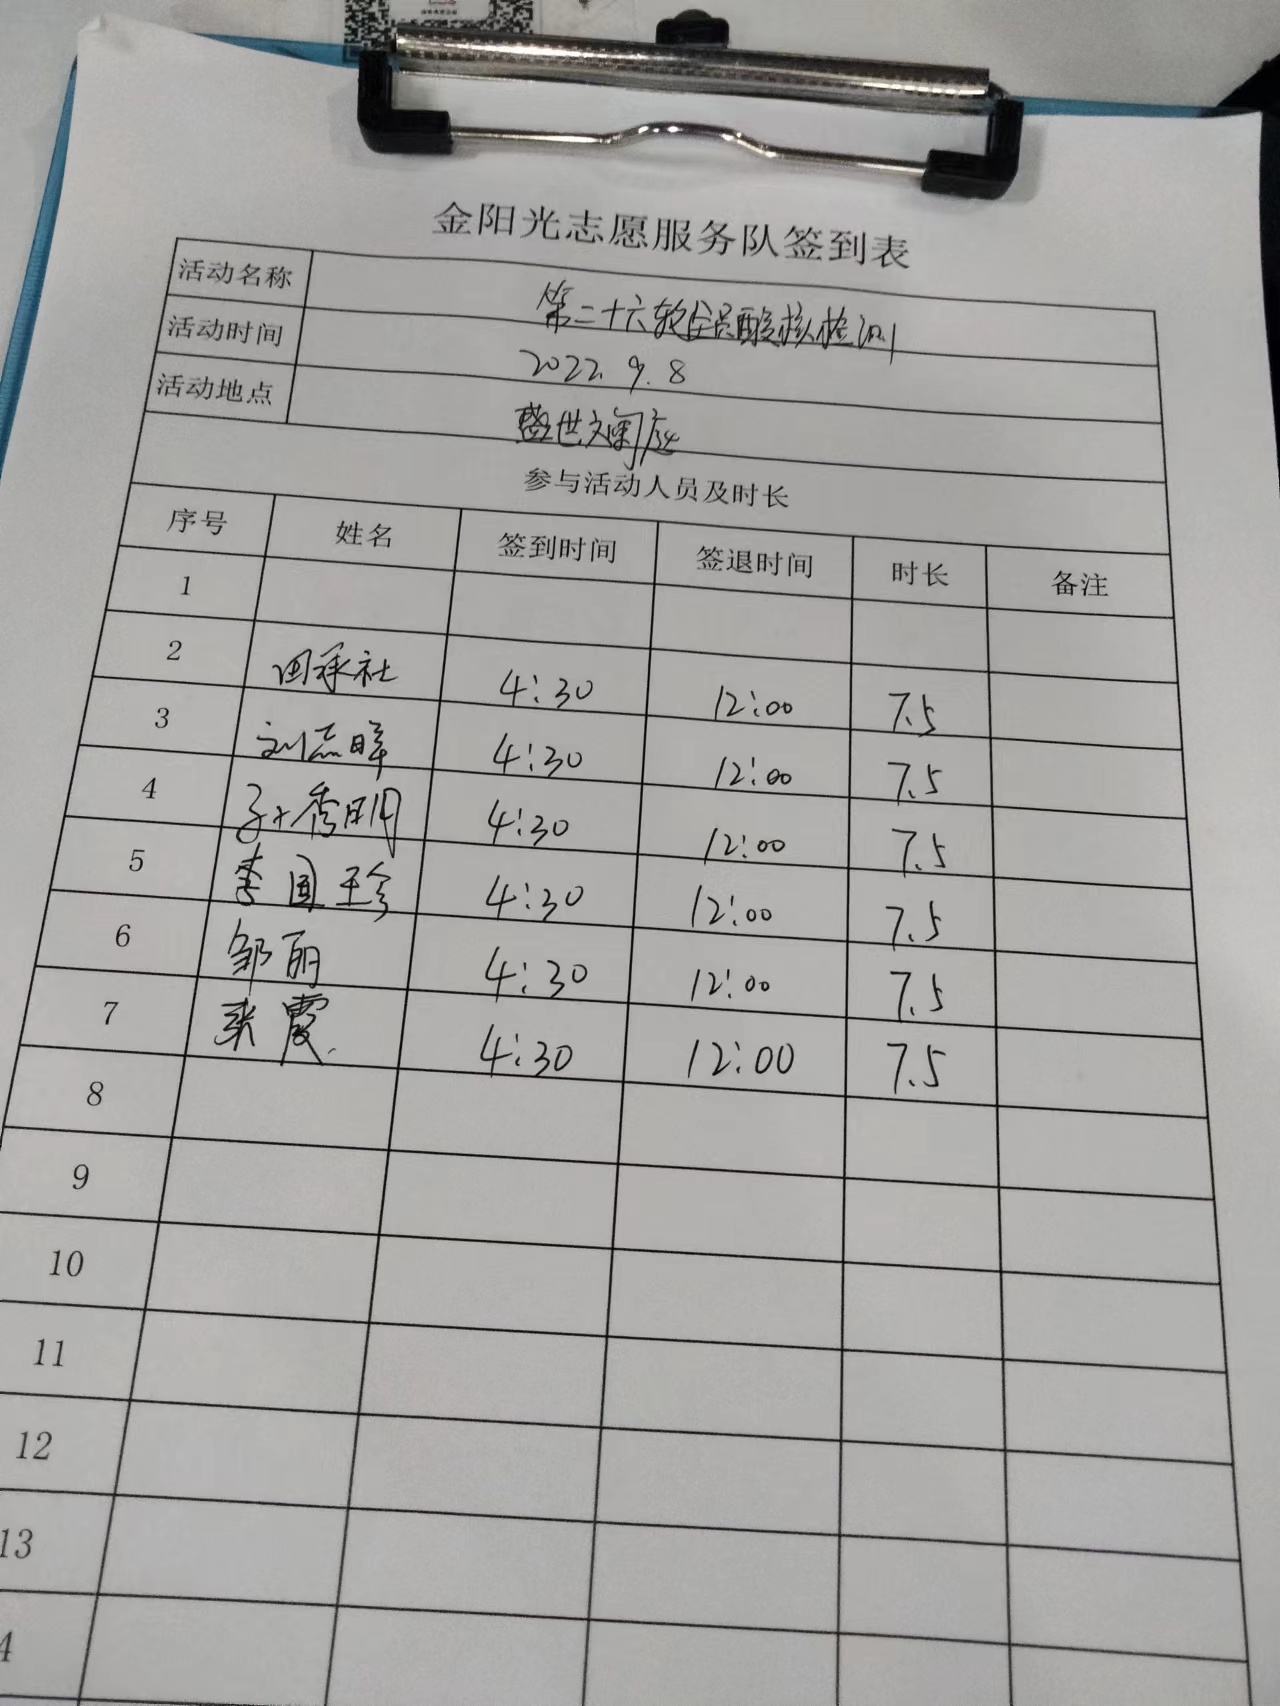 金阳光志愿服务队签到表
活动名称 第二十六轮全员酸核检测
活动时间 2022.9.8
活动地点 盛世文阁庭
参与活动人员及时长
序号 姓名 签到时间 签退时间 时长 备注
1
2 田承社 4:30 12:00 7.5
3 刘志晖 4:30 12:00 7.5
4 孙秀明 4:30 12:00 7.5
5 李国珍 4:30 12:00 7.5
6 邹丽 4:30 12:00 7.5
7 来霞 4:30 12:00 7.5
8
9
10
11
12
13
4